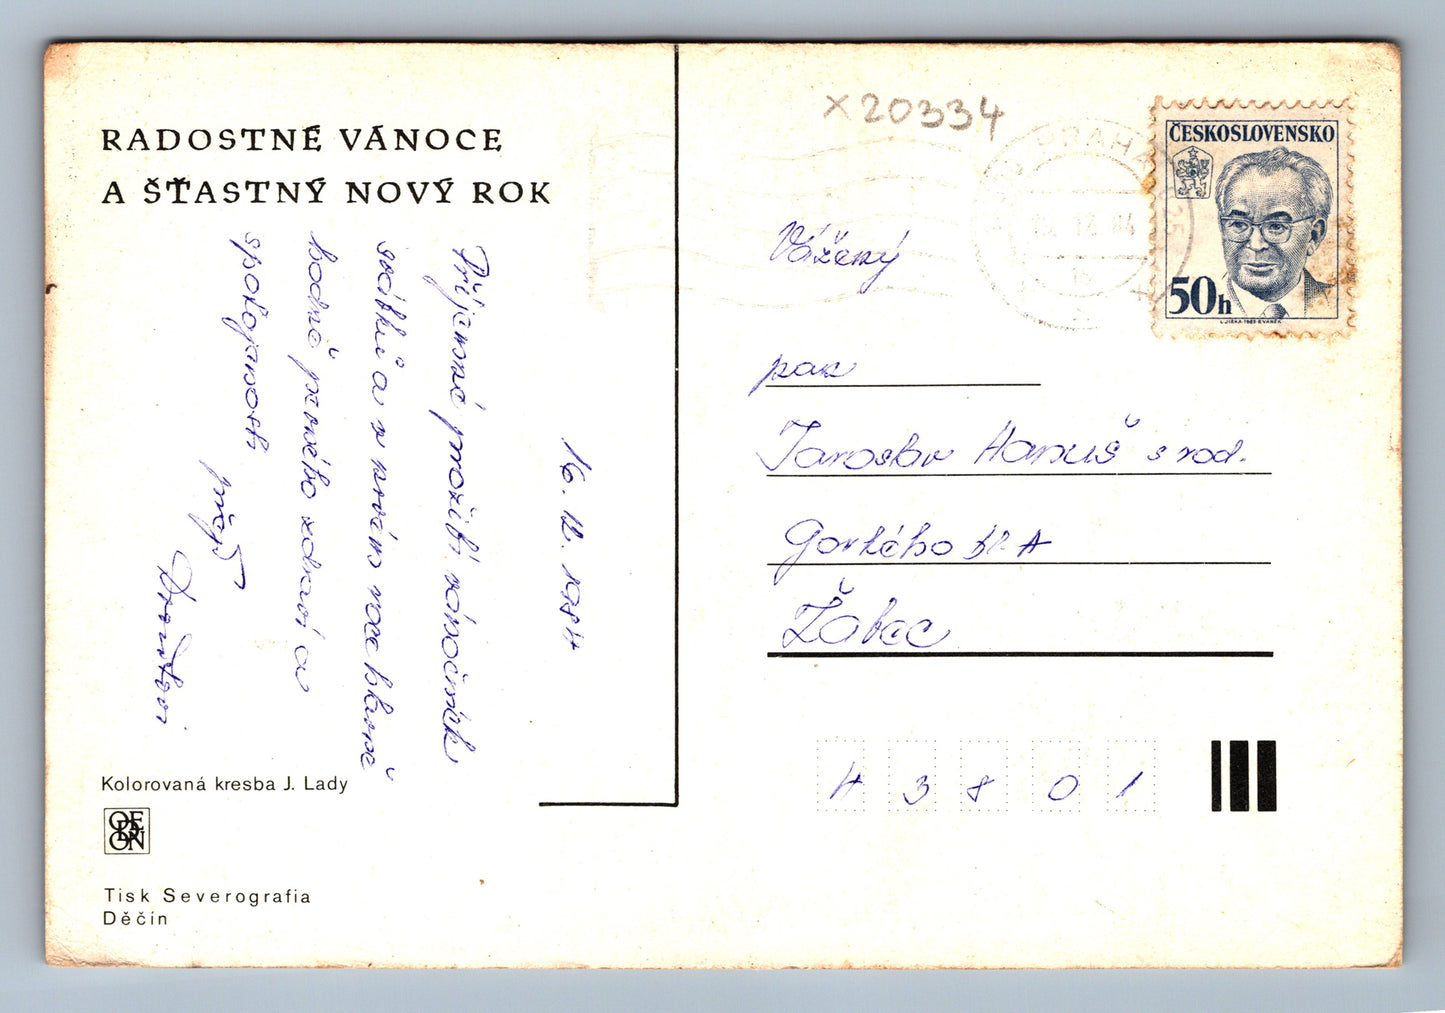 RADOSTNÉ VÁNOCE
A ŠŤASTNÝ NOVÝ ROK
16. 12. 1984
Příjemné prožití vánočních
svátků a v novém roce hlavně
hodně pevného zdraví a
spokojenosti
přejí
Kolorovaná kresba J. Lady
ODEON
Tisk Severografia
Děčín
x20334
PRAHA
ČESKOSLOVENSKO
50h
Vážený
pan
Jaroslav Hanuš s rod.
Gorkého bl. A
Žatec
43801